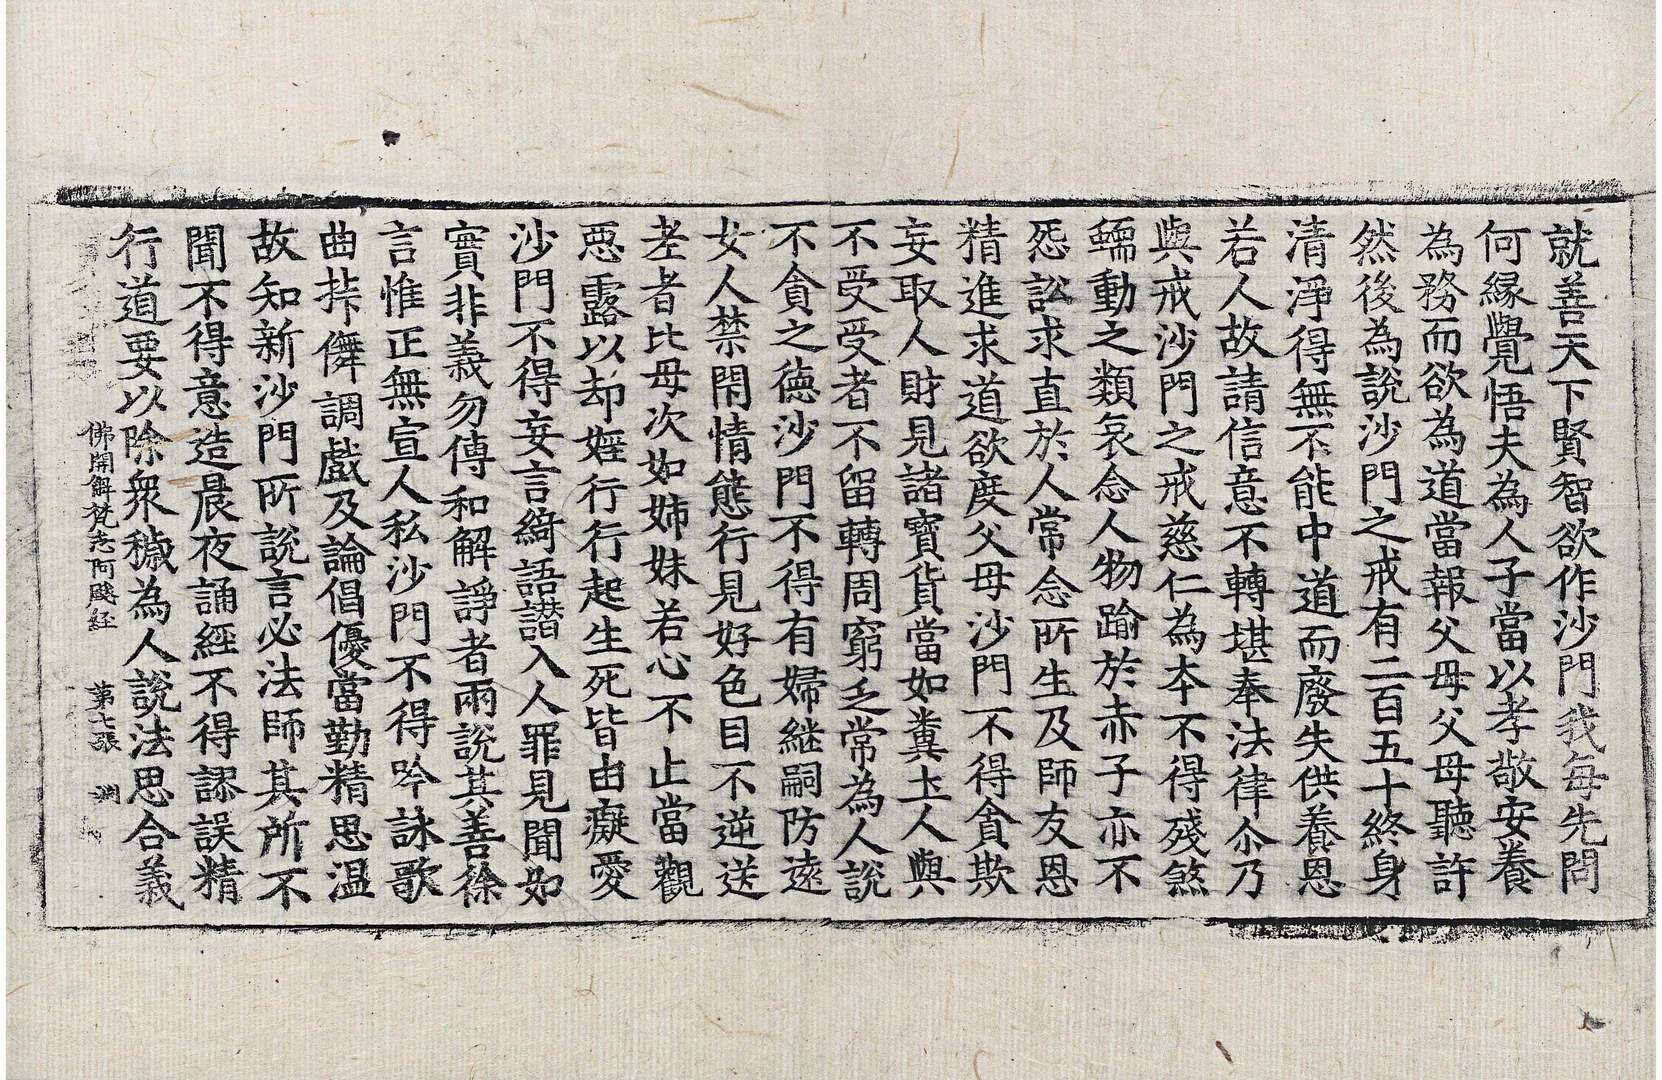 就善天下賢智欲作沙門我每先問
何緣覺悟夫為人子當以孝敬安養
為務而欲為道當報父母父母聽許
然後為說沙門之戒有二百五十終身
清淨得無不能中道而廢失供養恩
若人故請信意不轉堪奉法律尒乃
與戒沙門之戒慈仁為本不得殘煞
蠕動之類哀念人物踰於赤子亦不
怨訟求直於人常念所生及師友恩
精進求道欲度父母沙門不得貪欺
妄取人財見諸寶貨當如糞土人與
不受受者不留轉周窮乏常為人說
不貪之德沙門不得有婦継嗣防遠
女人禁閇情態行見好色目不逆送
老者比母次如姉妹若心不止當觀
惡露以却婬行行起生死皆由癡愛
沙門不得妄言綺語譖入人罪見聞如
實非義勿傳和解諍者兩說其善徐
言惟正無宣人私沙門不得吟詠歌
曲挊儛調戲及論倡優當勤精思温
故知新沙門所說言必法師其所不
聞不得意造晨夜誦經不得謬誤精
行道要以除衆穢為人說法思合義
佛開解梵志阿颰經 第七張 淵